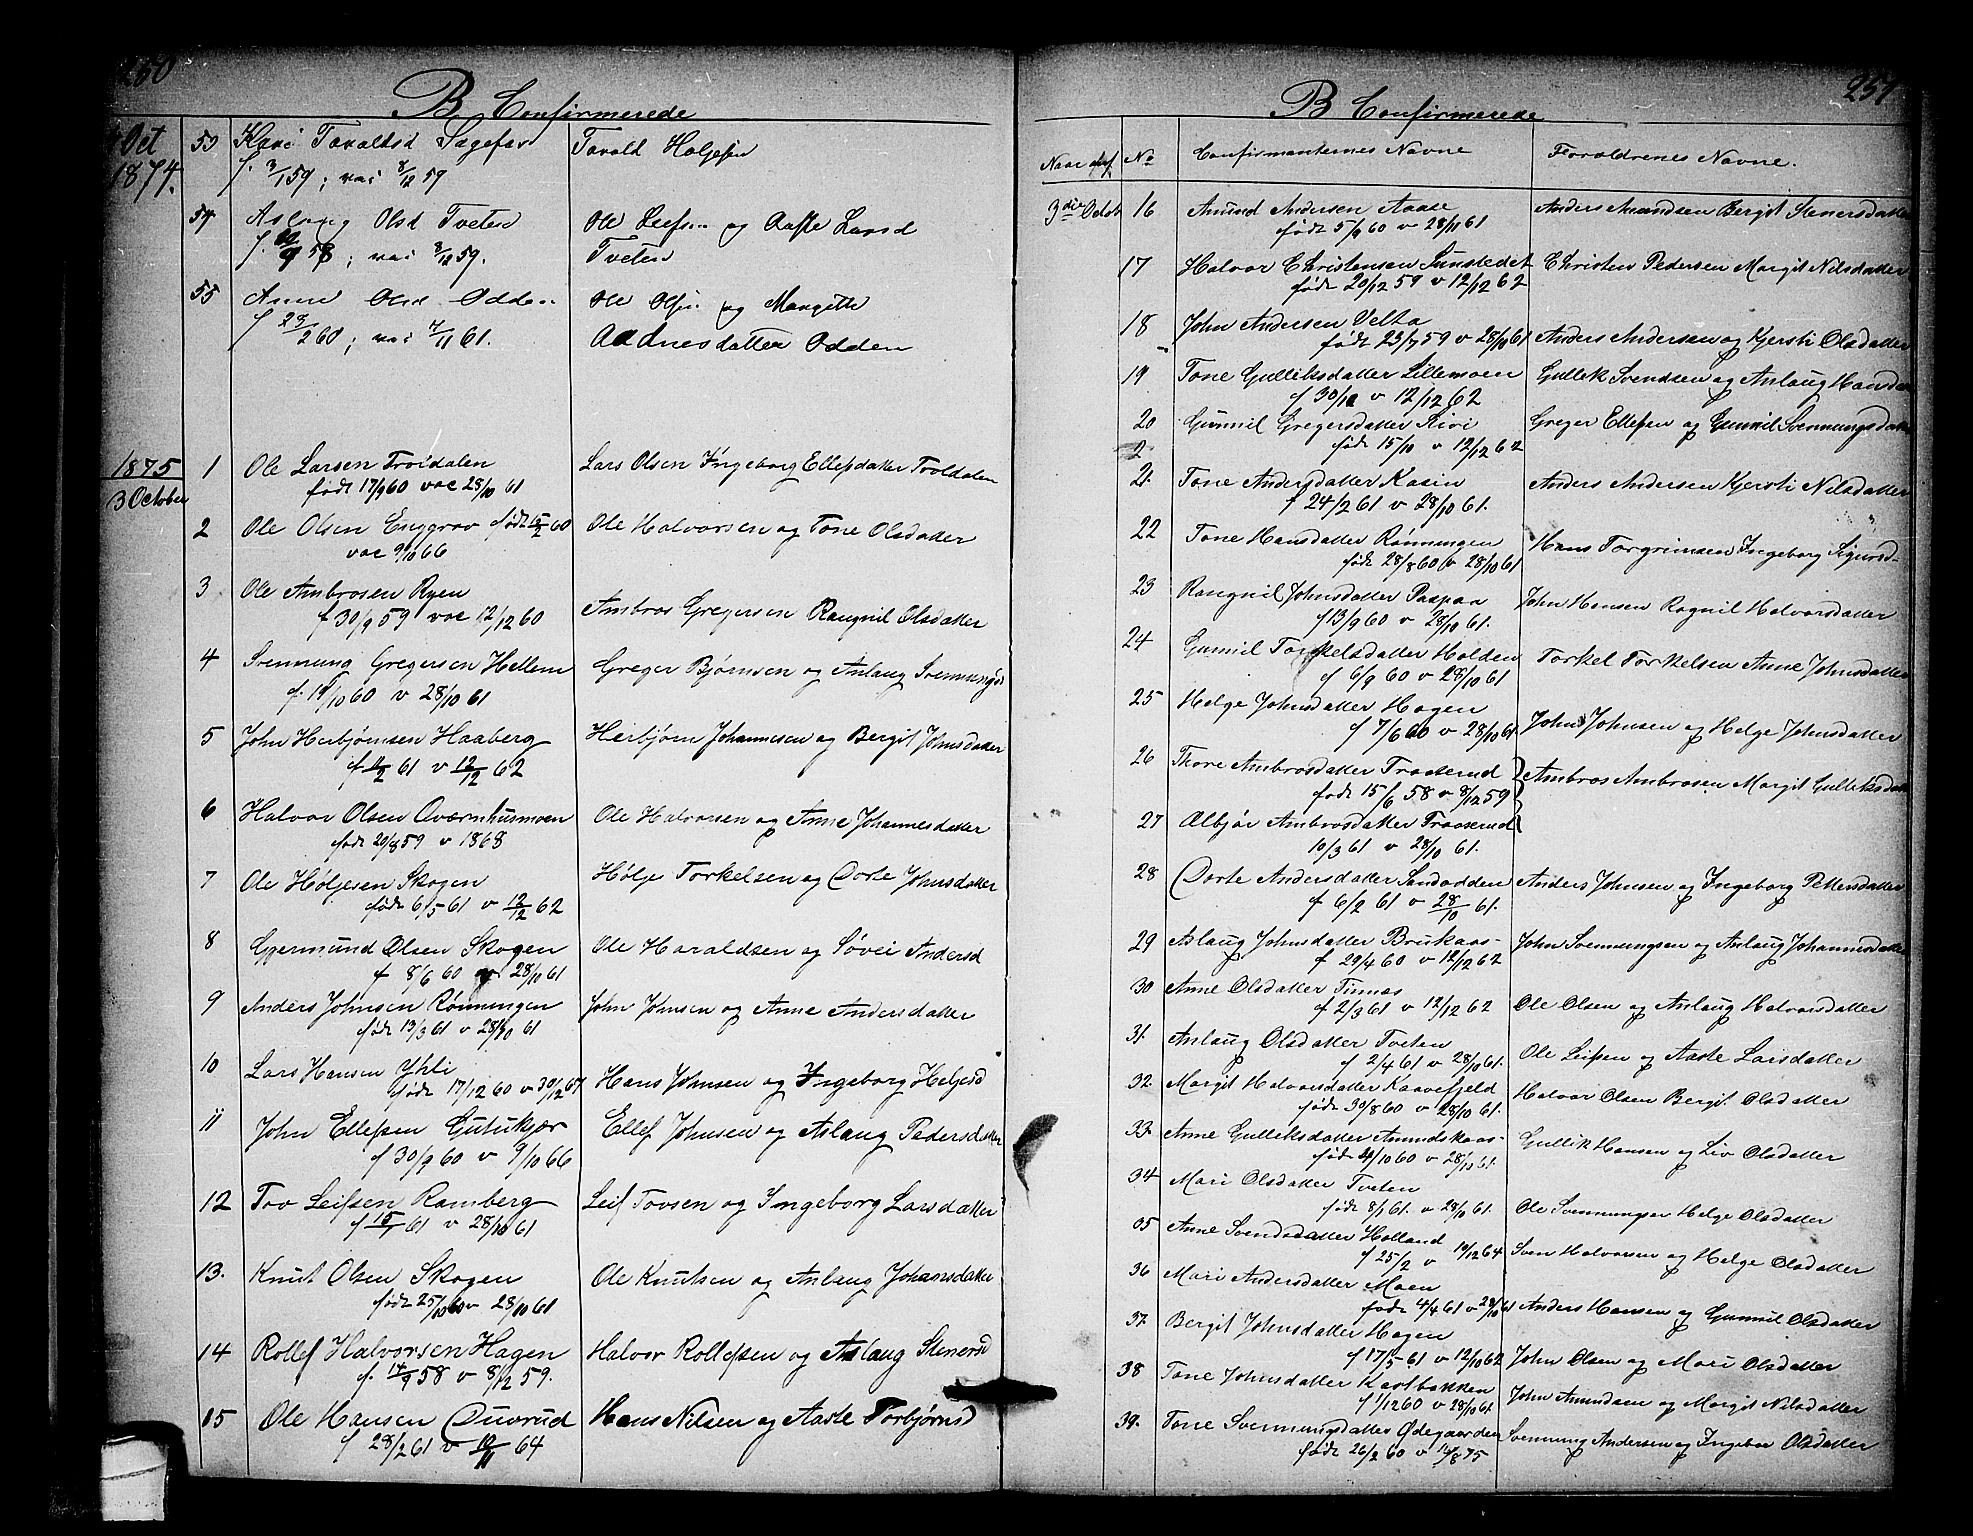 250
B Confirmerede
Oct
1874.
53 Kari Taraldsd Sagefar Tarald Holjesen
f. 3/1 59; vac 8/12 59
54 Aslaug Olsd Tveten Ole Leifsen og Aaste Larsd
58; vac 8/12 59. Tveten
55 Anne Olsd Odden Ole Olsen og Margithe
f 23/2 60; vac 7/11 61. Aadnesdatter Odden
1875
3 October
1 Ole Larsen Troldalen Lars Olsen Ingeborg Ellefsdatter Troldalen
født 17/9 60 vac 28/10 61
2 Ole Olsen Enggrav født 15/2 60 Ole Halvorsen og Tone Olsdatter
vac 9/10 66
3 Ole Ambrosen Ryen Ambros Gregersen Rangnil Olsdatter
f 30/9 59 vac 12/12 60
4 Svennung Gregersen Hellem Greger Bjørnsen og Aslaug Svennungsd
60 v 28/10 61
5 John Herbjørnsen Haaberg Herbjørn Johannesen og Bergit Johnsdatter
61 v 12/12 62
6 Halvor Olsen Qværnhusmoen Ole Halvorsen og Anne Johannesdatter
født 29/8 59 v 1868
7 Ole Høljesen Skogen Hølje Torkelsen og Dorte Johnsdatter
født 6/5 61 v 12/12 62
8 Gjermund Olsen Skogen Ole Haraldsen og Søvei Andersd
f 8/6 60 v 28/10 61
9 Anders Johnsen Rønningen John Johnsen og Anne Andersdatter
født 13/3 61 v 28/10 61
10 Lars Hansen Yhli Hans Johnsen og Ingeborg Heljesd
født 17/12 60 v 30/12 67
11 John Ellefsen Gutukjær Ellef Johnsen og Aslaug Pedersdatter
f 30/9 60 v 9/10 66
12 Tov Leifsen Ramberg Leif Tovsen og Ingeborg Larsdatter
f 15/1 61 v 28/10 61
13. Knut Olsen Skogen Ole Knutsen og Anlaug Johansdatter
født 25/10 60 v 28/10 61
14 Rollef Halvorsen Hagen Halvor Rollefsen og Aslaug Stenersd
f. 14/9 58 v 8/12 59.
15 Ole Hansen Duvrud Hans Nilsen og Aaste Torbjørnsd
f 28/2 61 v 10/11 64
251
B Confirmerede
Naar conf. No Confirmanternes Navne Forældrenes Navne.
3die Octob 16 Amund Andersen Aaase Anders Amundsen Bergit Stenersdatter
født 5/9 60 v 28/11 61
17 Halvor Christensen Sunstedet Christen Pedersen Margit Nilsdatter
født 20/12 59 v 12/12 62
18 John Andersen Velta Anders Andersen og Kjersti Olsdatter
født 23/7 59 v 28/10 61
19 Tone Gulliksdatter Lillemoen Gullik Svendsen og Anlaug Hansda
f 30/12 v 12/12 62
20 Gunnil Gregersdatter Kivi Greger Ellefsen og Gunnil Svennungsdatter
født 15/10 v 12/12 62
2
21. Tone Andersdatter Kasin Anders Andersen Kjersti Nilsdatter
f 24/2 61 v 28/10 61.
22 Tone Hansdatter Rønningen Hans Torgrimsen Ingeborg Sigursd-
født 28/8 60 v 28/10 61
23 Rangnil Johnsdatter Paspaa John Hansen Ragnil Halvorsdatter
f 13/9 60 v 28/10 61.
24 Gunnil Torkelsdatter Holden Torkel Torkelsen Anne Johnsdatter
f 6/9 60 v 28/10 61
25 Helge Johnsdatter Hagen John Johnsen og Helge Johnsdatter
f 7/6 60 v 28/10 61.
26 Thore Ambrosdatter Traaserud Ambros Ambrosen Margit Gulliksdatter
født 15/6 58 v 8/12 59
27 Ælbjør Ambrosdatter Traaserud
10/3 61 v 28/10 61.
28 Dorte Andersdatter Sandodden Anders Johnsen og Ingeborg Pettersdatter
f 6/2 61 v 28/10 61.
29 Aslaug Johnsdatter Brukaas- John Svennungsen og Anlaug Johannesdatter
f 29/4 60 v 12/12 62
30 Anne Olsdatter Tinnes Ole Olsen og Anlaug Halvorsdatter
f 2/3 61 v 12/12 62
31. Anlaug Olsdatter Tveten Ole Leifsen og Aaste Larsdatter
f 2/4 61 v 28/10 61.
32. Margit Halvorsdatter Kaavefjeld Halvor Olsen Bergit Olsdatter
født 30/8 60 v 28/10 61.
33. Anne Gulliksdatter Amundskaas- Gullik Hansen og Liv Olsdatter
født 4/10 60 v 28/10 61.
34 Mari Olsdatter Tveten Ole Svennungsen Helge Olsdatter
født 8/1 61. v 28/10 61.
35 Anne Svendsdatter Holland Sven Halvorsen og Helge Olsdatter
f 25/2 v 19/12 64
36 Mari Andersdatter Moen Anders Hansen og Gunnil Olsdatter
født 4/4 61 v 28/10 61
37. Bergit Johnsdatter Hagen John Olsen og Mari Olsdatter
f 17/5 61 v 12/10 62
38 Tone Johnsdatter Kastbakken John Amundsen og Margit Nilsdatter
f 1/12 60 v 28/10 61.
39. Tone Svennungsdatter Ødegaarden Svennung Andersen og Ingebor Olsdatter
født 26/2 60 v 14/8 75